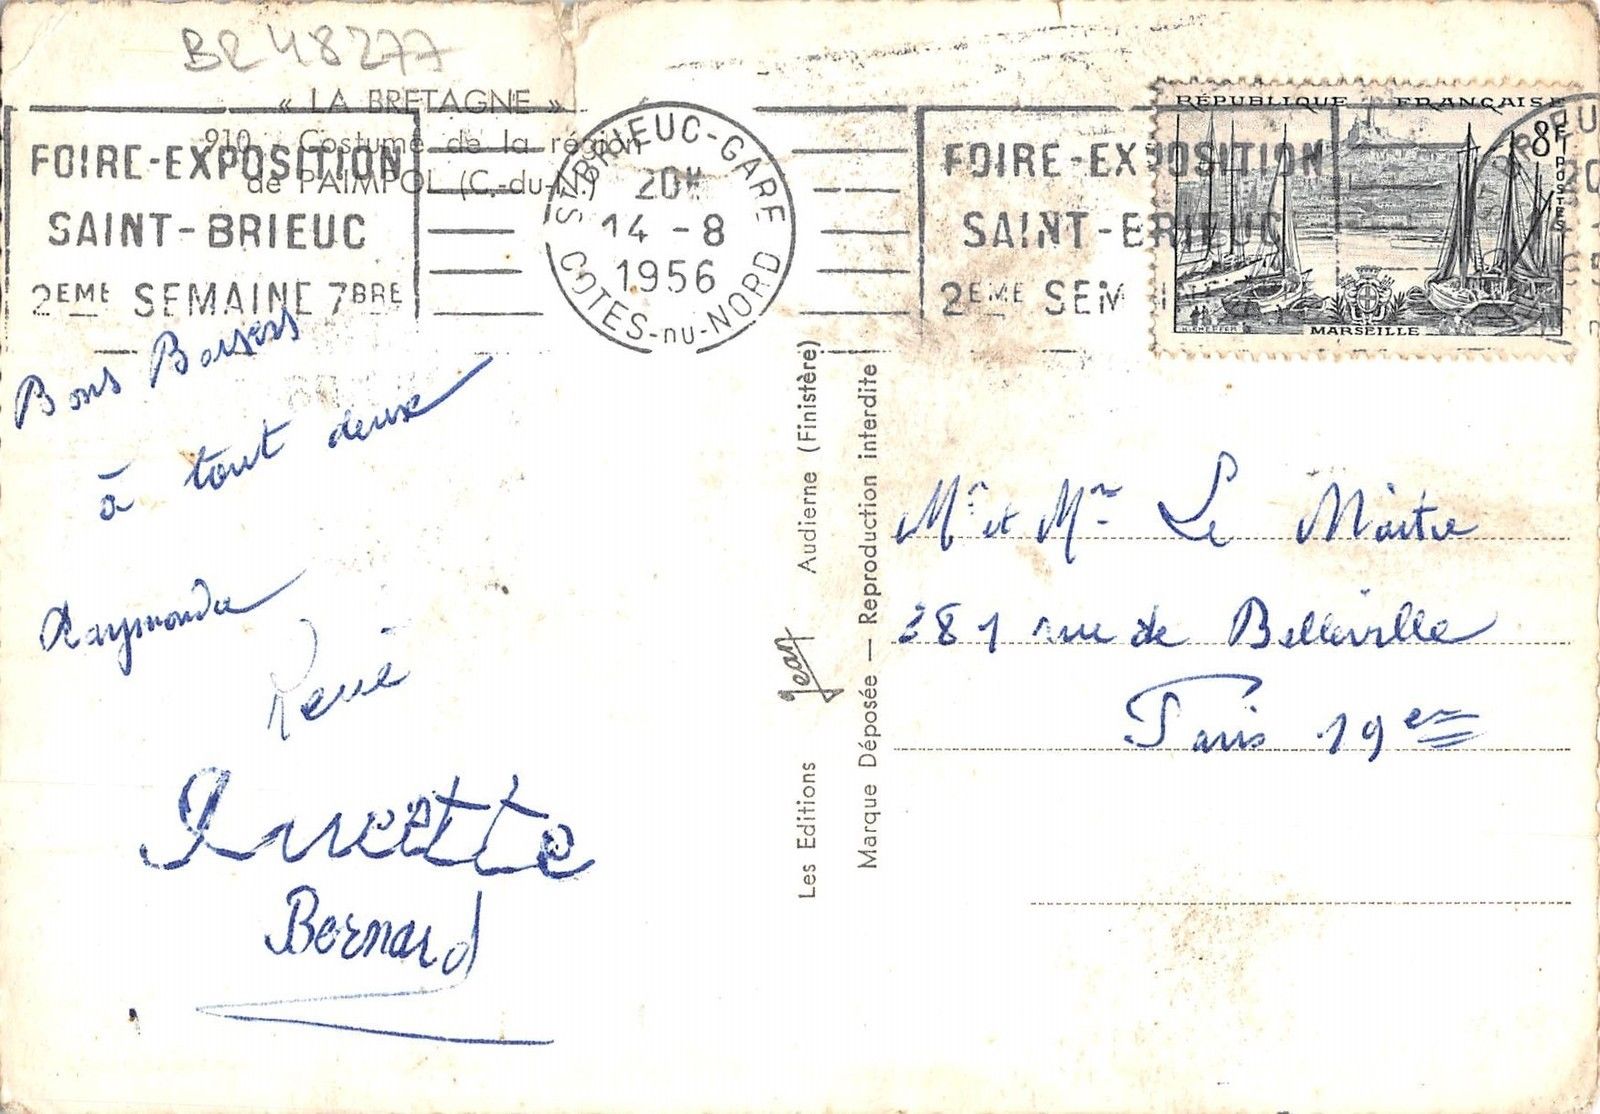 BR 48277
« LA BRETAGNE »
910 - Costume de la région
de PAIMPOL (C.-du-N.)
FOIRE-EXPOSITION
SAINT-BRIEUC
2EME SEMAINE 7BRE
ST BRIEUC-GARE
20H
14 - 8
1956
COTES-DU-NORD
FOIRE-EXPOSITION
SAINT-BRIEUC
2EME SEM
RÉPUBLIQUE FRANÇAISE
8F
POSTES
MARSEILLE
Bons Baisers
à tout deux
Raymonde
René
Lucette
Bernard
Les Editions Jean Audierne (Finistère)
Marque Déposée — Reproduction interdite
Mr et Mme Le Maitre
281 rue de Belleville
Paris 19em